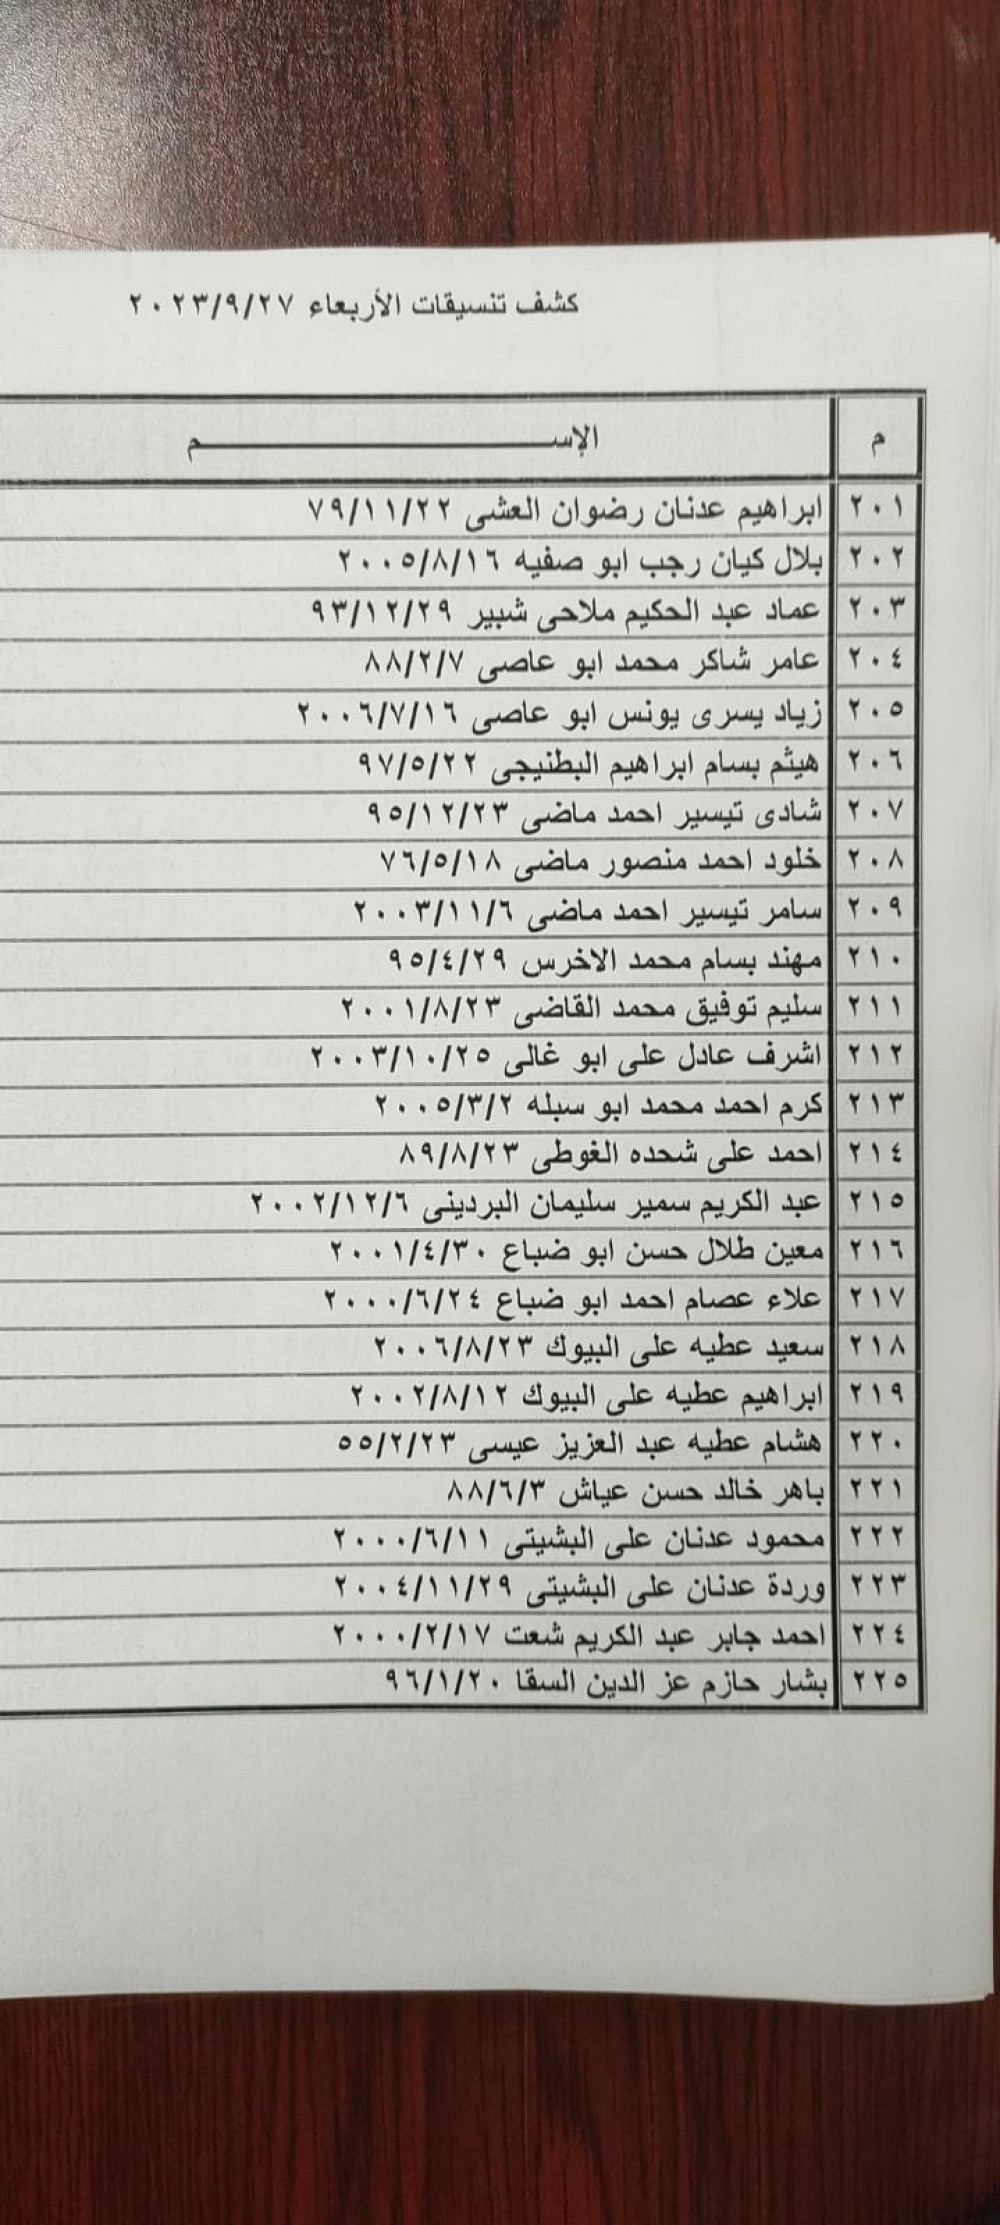 كشف تنسيقات الأربعاء ٢٠٢٣/٩/٢٧
م الإســـــم
٢٠١ ابراهيم عدنان رضوان العشى ٧٩/١١/٢٢
٢٠٢ بلال كيان رجب ابو صفيه ٢٠٠٥/٨/١٦
٢٠٣ عماد عبد الحكيم ملاحى شبير ٩٣/١٢/٢٩
٢٠٤ عامر شاكر محمد ابو عاصى ٨٨/٢/٧
٢٠٥ زياد يسرى يونس ابو عاصى ٢٠٠٦/٧/١٦
٢٠٦ هيثم بسام ابراهيم البطنيجى ٩٧/٥/٢٢
٢٠٧ شادى تيسير احمد ماضى ٩٥/١٢/٢٣
٢٠٨ خلود احمد منصور ماضى ٧٦/٥/١٨
٢٠٩ سامر تيسير احمد ماضى ٢٠٠٣/١١/٦
٢١٠ مهند بسام محمد الاخرس ٩٥/٤/٢٩
٢١١ سليم توفيق محمد القاضى ٢٠٠١/٨/٢٣
٢١٢ اشرف عادل على ابو غالى ٢٠٠٣/١٠/٢٥
٢١٣ كرم احمد محمد ابو سبله ٢٠٠٥/٣/٢
٢١٤ احمد على شحده الغوطى ٨٩/٨/٢٣
٢١٥ عبد الكريم سمير سليمان البردينى ٢٠٠٢/١٢/٦
٢١٦ معين طلال حسن ابو ضباع ٢٠٠١/٤/٣٠
٢١٧ علاء عصام احمد ابو ضباع ٢٠٠٠/٦/٢٤
٢١٨ سعيد عطيه على البيوك ٢٠٠٦/٨/٢٣
٢١٩ ابراهيم عطيه على البيوك ٢٠٠٢/٨/١٢
٢٢٠ هشام عطيه عبد العزيز عيسى ٥٥/٢/٢٣
٢٢١ باهر خالد حسن عياش ٨٨/٦/٣
٢٢٢ محمود عدنان على البشيتى ٢٠٠٠/٦/١١
٢٢٣ وردة عدنان على البشيتى ٢٠٠٤/١١/٢٩
٢٢٤ احمد جابر عبد الكريم شعت ٢٠٠٠/٢/١٧
٢٢٥ بشار حازم عز الدين السقا ٩٦/١/٢٠